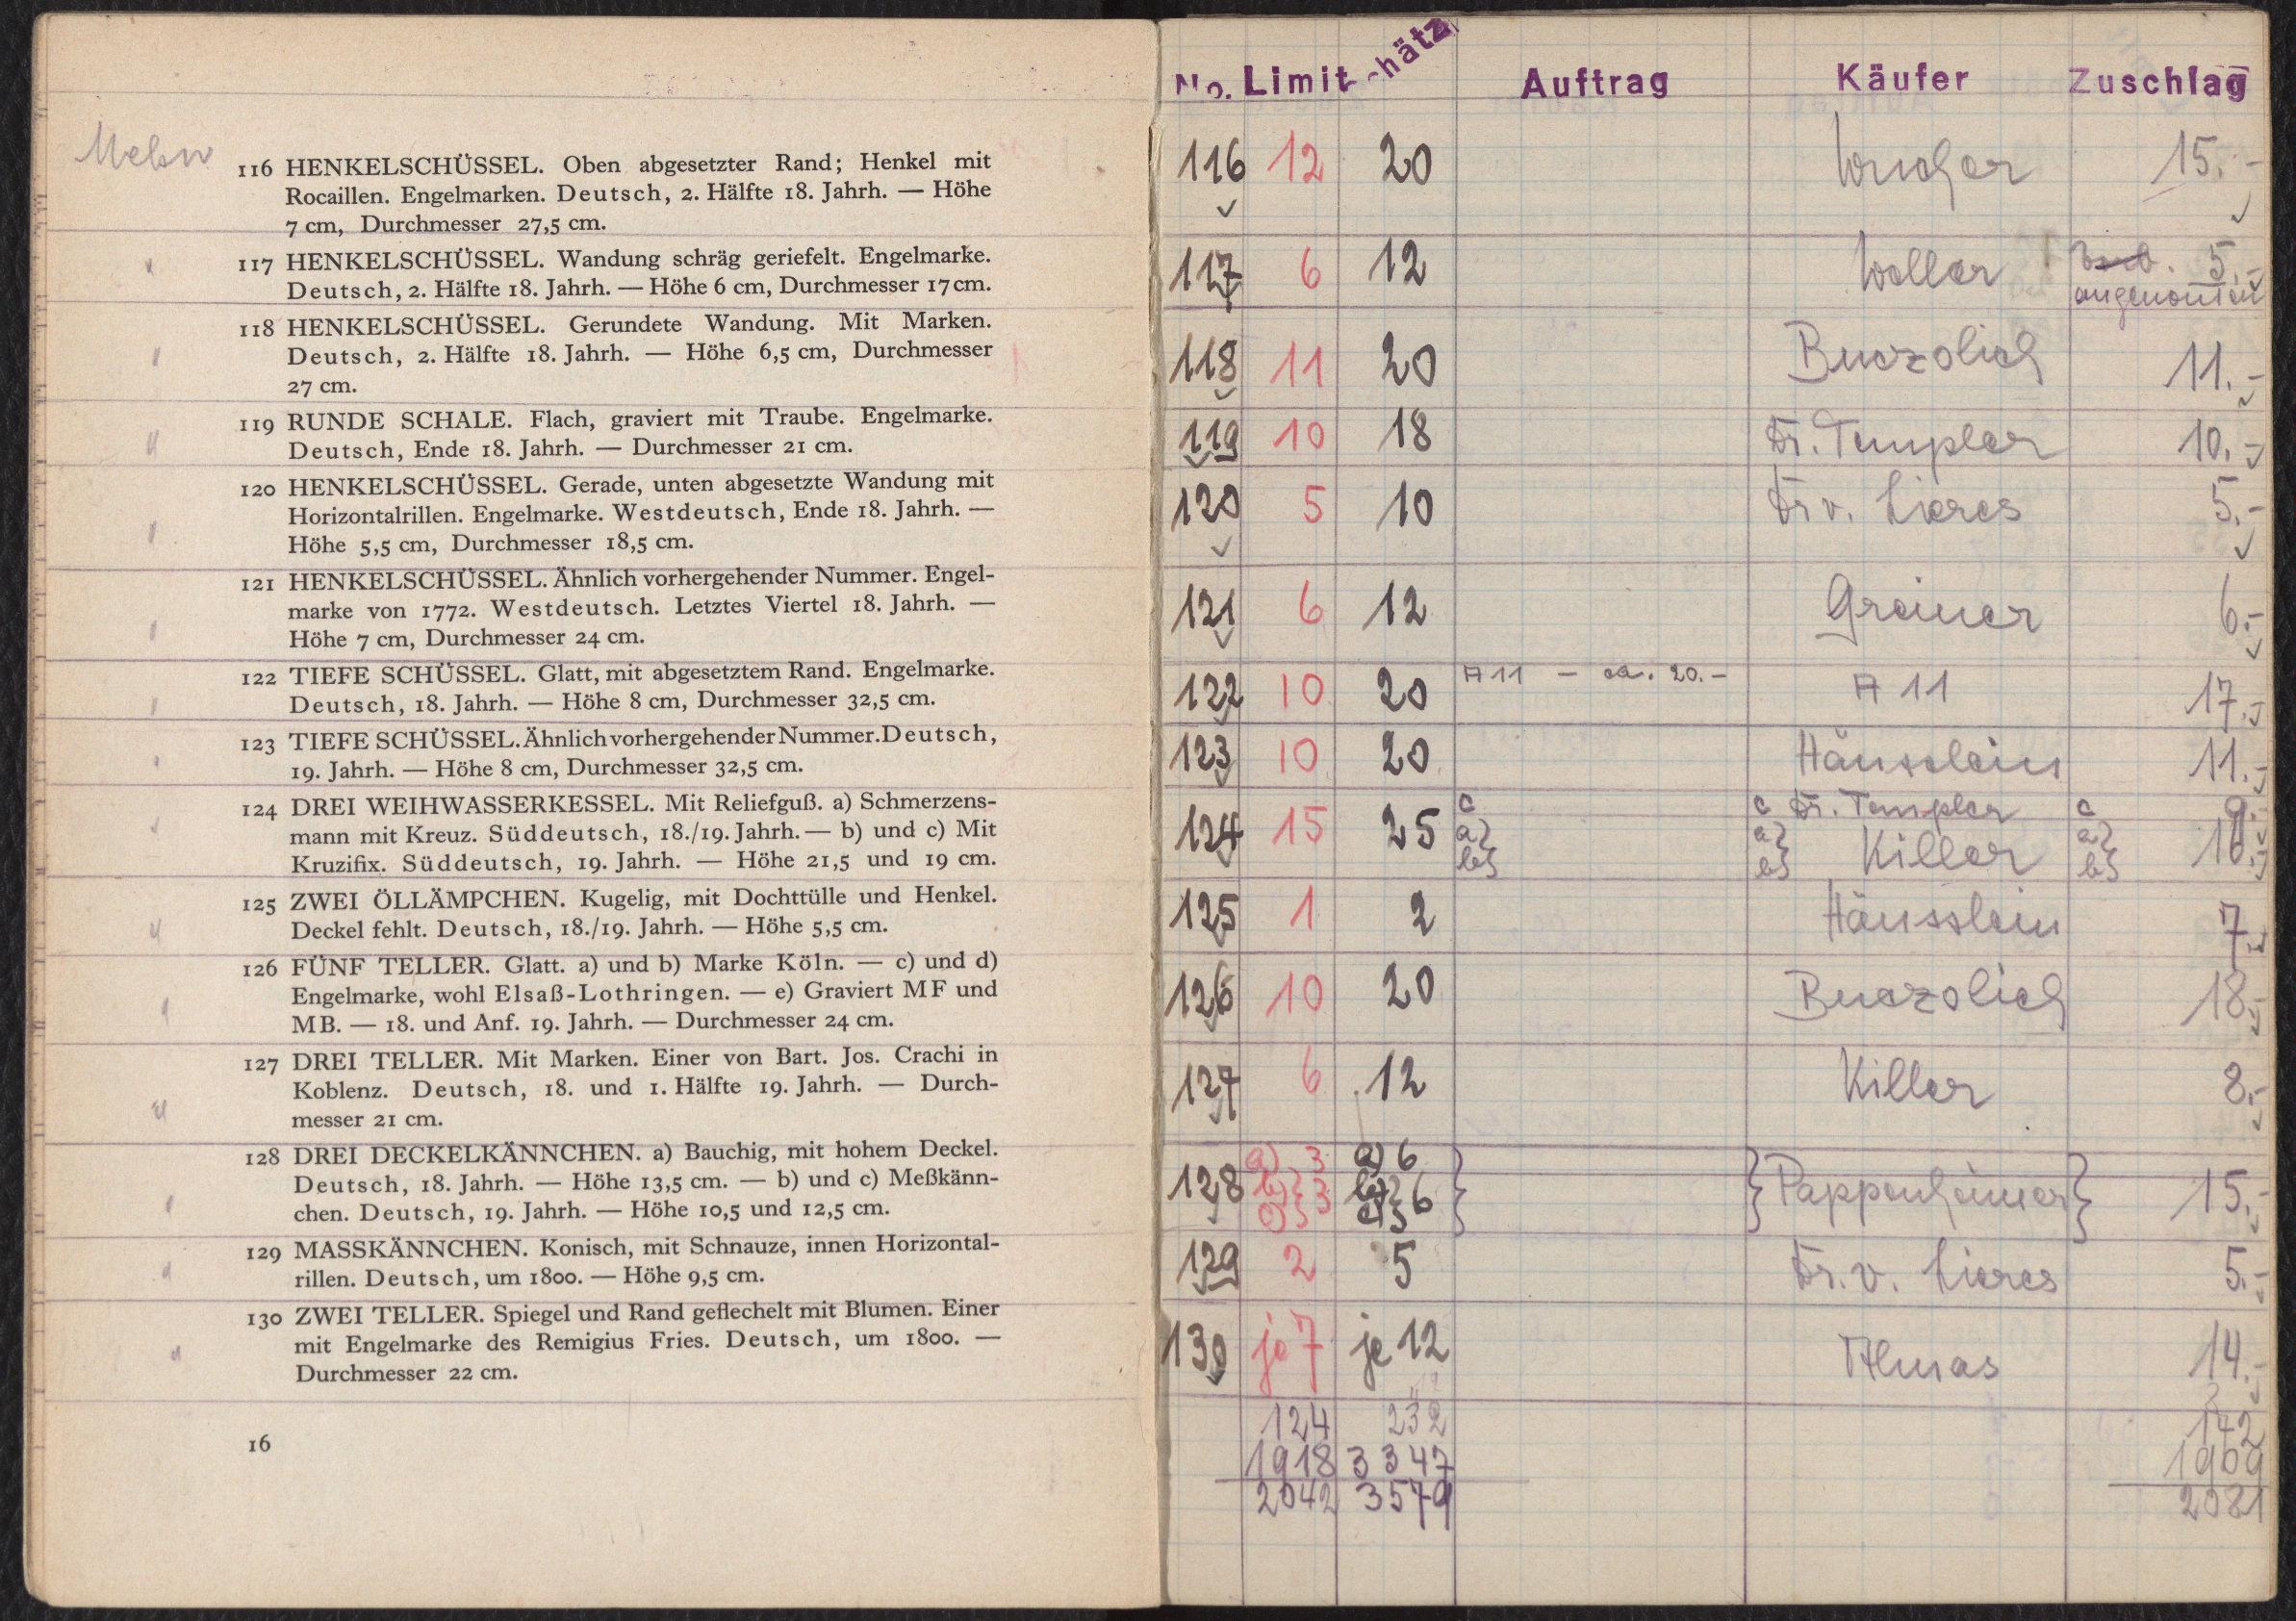 116 HENKELSCHÜSSEL. Oben abgesetzter Rand; Henkel mit
Rocaillen. Engelmarken. Deutsch, 2. Hälfte 18. Jahrh. — Höhe
7 cm, Durchmesser 27,5 cm.
117 HENKELSCHÜSSEL. Wandung schräg geriefelt. Engelmarke.
Deutsch, 2. Hälfte 18. Jahrh. — Höhe 6 cm, Durchmesser 17 cm.
118 HENKELSCHÜSSEL. Gerundete Wandung. Mit Marken.
Deutsch, 2. Hälfte 18. Jahrh. — Höhe 6,5 cm, Durchmesser
27 cm.
119 RUNDE SCHALE. Flach, graviert mit Traube. Engelmarke.
Deutsch, Ende 18. Jahrh. — Durchmesser 21 cm.
120 HENKELSCHÜSSEL. Gerade, unten abgesetzte Wandung mit
Horizontalrillen. Engelmarke. Westdeutsch, Ende 18. Jahrh. —
Höhe 5,5 cm, Durchmesser 18,5 cm.
121 HENKELSCHÜSSEL. Ähnlich vorhergehender Nummer. Engel-
marke von 1772. Westdeutsch. Letztes Viertel 18. Jahrh. —
Höhe 7 cm, Durchmesser 24 cm.
122 TIEFE SCHÜSSEL. Glatt, mit abgesetztem Rand. Engelmarke.
Deutsch, 18. Jahrh. — Höhe 8 cm, Durchmesser 32,5 cm.
123 TIEFE SCHÜSSEL. Ähnlich vorhergehender Nummer. Deutsch,
19. Jahrh. — Höhe 8 cm, Durchmesser 32,5 cm.
124 DREI WEIHWASSERKESSEL. Mit Reliefguß. a) Schmerzens-
mann mit Kreuz. Süddeutsch, 18./19. Jahrh. — b) und c) Mit
Kruzifix. Süddeutsch, 19. Jahrh. — Höhe 21,5 und 19 cm.
125 ZWEI ÖLLÄMPCHEN. Kugelig, mit Dochttülle und Henkel.
Deckel fehlt. Deutsch, 18./19. Jahrh. — Höhe 5,5 cm.
126 FÜNF TELLER. Glatt. a) und b) Marke Köln. — c) und d)
Engelmarke, wohl Elsaß-Lothringen. — e) Graviert MF und
MB. — 18. und Anf. 19. Jahrh. — Durchmesser 24 cm.
127 DREI TELLER. Mit Marken. Einer von Bart. Jos. Crachi in
Koblenz. Deutsch, 18. und 1. Hälfte 19. Jahrh. — Durch-
messer 21 cm.
128 DREI DECKELKÄNNCHEN. a) Bauchig, mit hohem Deckel.
Deutsch, 18. Jahrh. — Höhe 13,5 cm. — b) und c) Meßkänn-
chen. Deutsch, 19. Jahrh. — Höhe 10,5 und 12,5 cm.
129 MASSKÄNNCHEN. Konisch, mit Schnauze, innen Horizontal-
rillen. Deutsch, um 1800. — Höhe 9,5 cm.
130 ZWEI TELLER. Spiegel und Rand geflechelt mit Blumen. Einer
mit Engelmarke des Remigius Fries. Deutsch, um 1800. —
Durchmesser 22 cm.
16
No. Limit hätz Auftrag Käufer Zuschlag
116 12 20 15.-
117 6 12 Woller 5.-
angenommen
118 11 20 Buczolich 11.-
119 10 18 Dr. Templer 10.-
120 5 10 Dr v. Lieres 5.-
121 6 12 Greiner 6.-
122 10 20 A 11 - ca. 20.- A 11 17.-
123 10 20 Häusslein 11.-
c c Dr. Templer c 9.-
124 15 25 a} b} a} b} Killer a} b} 10.-
125 1 2 Häusslein 7.-
126 10 20 Buczolich 18.-
127 6 12 Killer 8.-
128 a) 3 a) 6
b) c) } 3 b) c) } 6 } } Pappenheimer } 15.-
129 2 5 Dr. v. Lieres 5.-
130 je 7 je 12 Almas 14.-
124 232 172
1918 3347 1909
2042 3579 2081